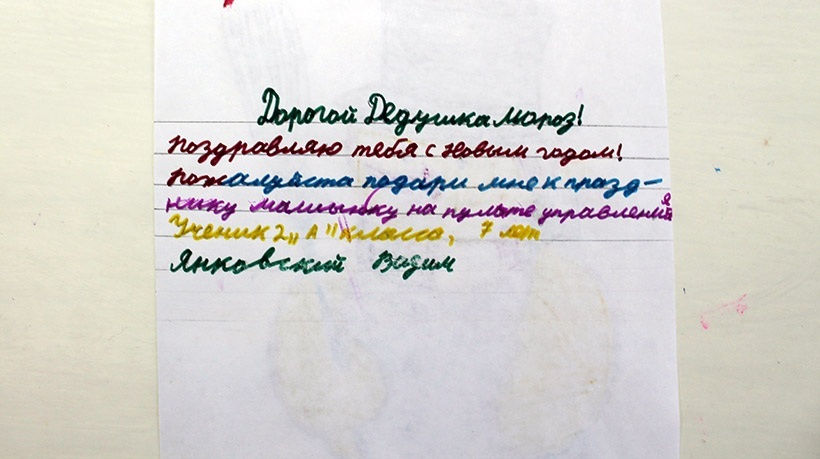 Дорогой Дедушка Мороз!
Поздравляю тебя с Новым годом!
Пожалуйста подари мне к празд-
нику машынку на пульте управления
Ученик 2 "А" класса, 7 лет
Янковский Вадим